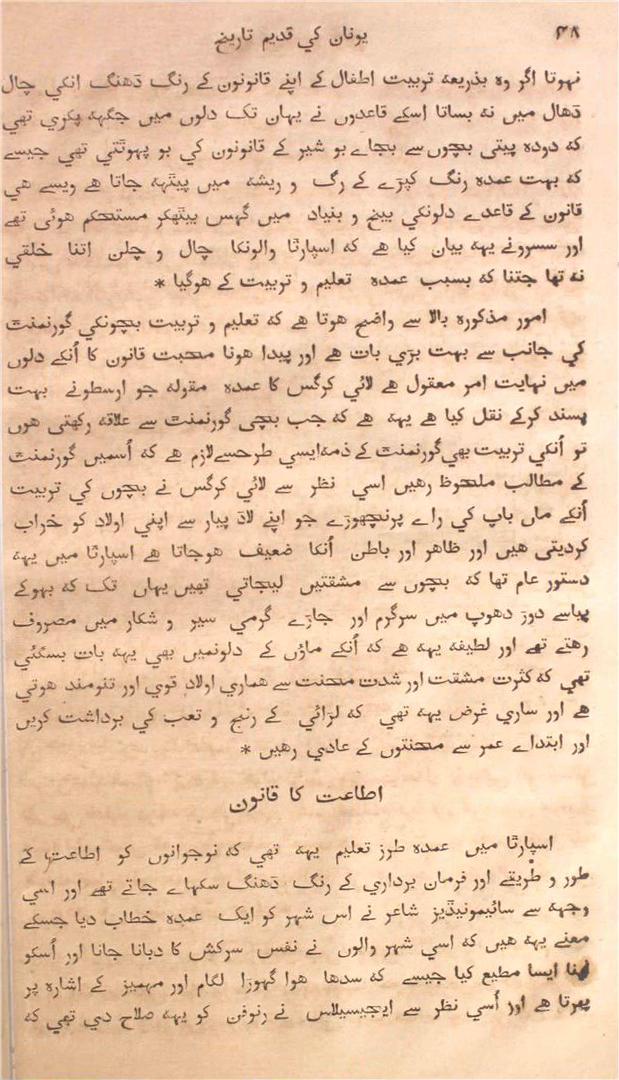 ۴۸ یونان کي قدیم تاریخ
نہوتا اگر وہ بذریعہ تربیت اطفال کے اپنے قانونوں کے رنگ ڈھنگ انکي چال
ڈھال میں نہ بساتا اسکے قاعدوں نے یہاں تک دلوں میں جگہہ پکڑي تھي
کہ دودہ پیتی بچوں سے بجاے بو شیر کے قانونوں کي بو پہوٹتي تھي جیسے
کہ بہت عمدہ رنگ کپڑے کے رگ و ریشہ میں پیٹہہ جاتا ھے ویسے ھي
قانون کے قاعدے دلونکي بیخ و بنیاد میں گہس بیٹھکر مستحکم ھوئی تھے
اور سسرونے یہہ بیان کیا ھے کہ اسپارٹا والونکا چال و چلن اتنا خلقي
نہ تھا جتنا کہ بسبب عمدہ تعلیم و تربیت کے ھوگیا *
امور مذکورہ بالا سے واضح ھوتا ھے کہ تعلیم و تربیت بچونکي گورنمنٹ
کي جانب سے بہت بڑي بات ھے اور پیدا ھونا محبت قانون کا اُنکے دلوں
میں نہایت امر معقول ھے لائي کرگس کا عمدہ مقولہ جو ارسطونے بہت
پسند کرکے نقل کیا ھے یہہ ھے کہ جب بچی گورنمنٹ سے علاقہ رکھتی ھوں
تو اُنکي تربیت بھي گورنمنٹ کے ذمہ ایسي طرحسے لازم ھے کہ اُسمیں گورنمنٹ
کے مطالب ملحوظ رھیں اسي نظر سے لائي کرگس نے بچوں کي تربیت
اُنکے ماں باپ کي راے پر نچھوڑے جو اپنے لاڈ پیار سے اپني اولاد کو خراب
کردیتی ھیں اور ظاھر اور باطن اُنکا ضعیف ھوجاتا ھے اسپارٹا میں یہہ
دستور عام تھا کہ بچوں سے مشقتیں لیجاتي تھیں یہاں تک کہ بہوکے
پیاسے دوڑ دھوپ میں سرگرم اور جاڑے گرمي سیر و شکار میں مصروف
رھتے تھے اور لطیفہ یہہ ھے کہ اُنکے ماؤں کے دلونمیں بھي یہہ بات بسگئي
تھي کہ کثرت مشقت اور شدت محنت سے ھماري اولاد قوي اور تنومند ھوتي
ھے اور ساري غرض یہہ تھي کہ لڑائي کے رنج و تعب کي برداشت کریں
اور ابتداے عمر سے محنتوں کے عادي رھیں *
اطاعت کا قانون
اسپارٹا میں عمدہ طرز تعلیم یہہ تھي کہ نوجوانوں کو اطاعت کے
طور و طریقے اور فرمان برداري کے رنگ ڈھنگ سکہاے جاتے تھے اور اسي
وجہہ سے سائیمونیڈیز شاعر نے اس شہر کو ایک عمدہ خطاب دیا جسکے
معنے یہہ ھیں کہ اسي شہر والوں نے نفس سرکش کا دبانا جانا اور اُسکو
اپنا ایسا مطیع کیا جیسے کہ سدھا ھوا گہوڑا لگام اور مہمیز کے اشارہ پر
پھرتا ھے اور اُسي نظر سے ایجیسیلاس نے زنوفن کو یہہ صلاح دي تھي کہ